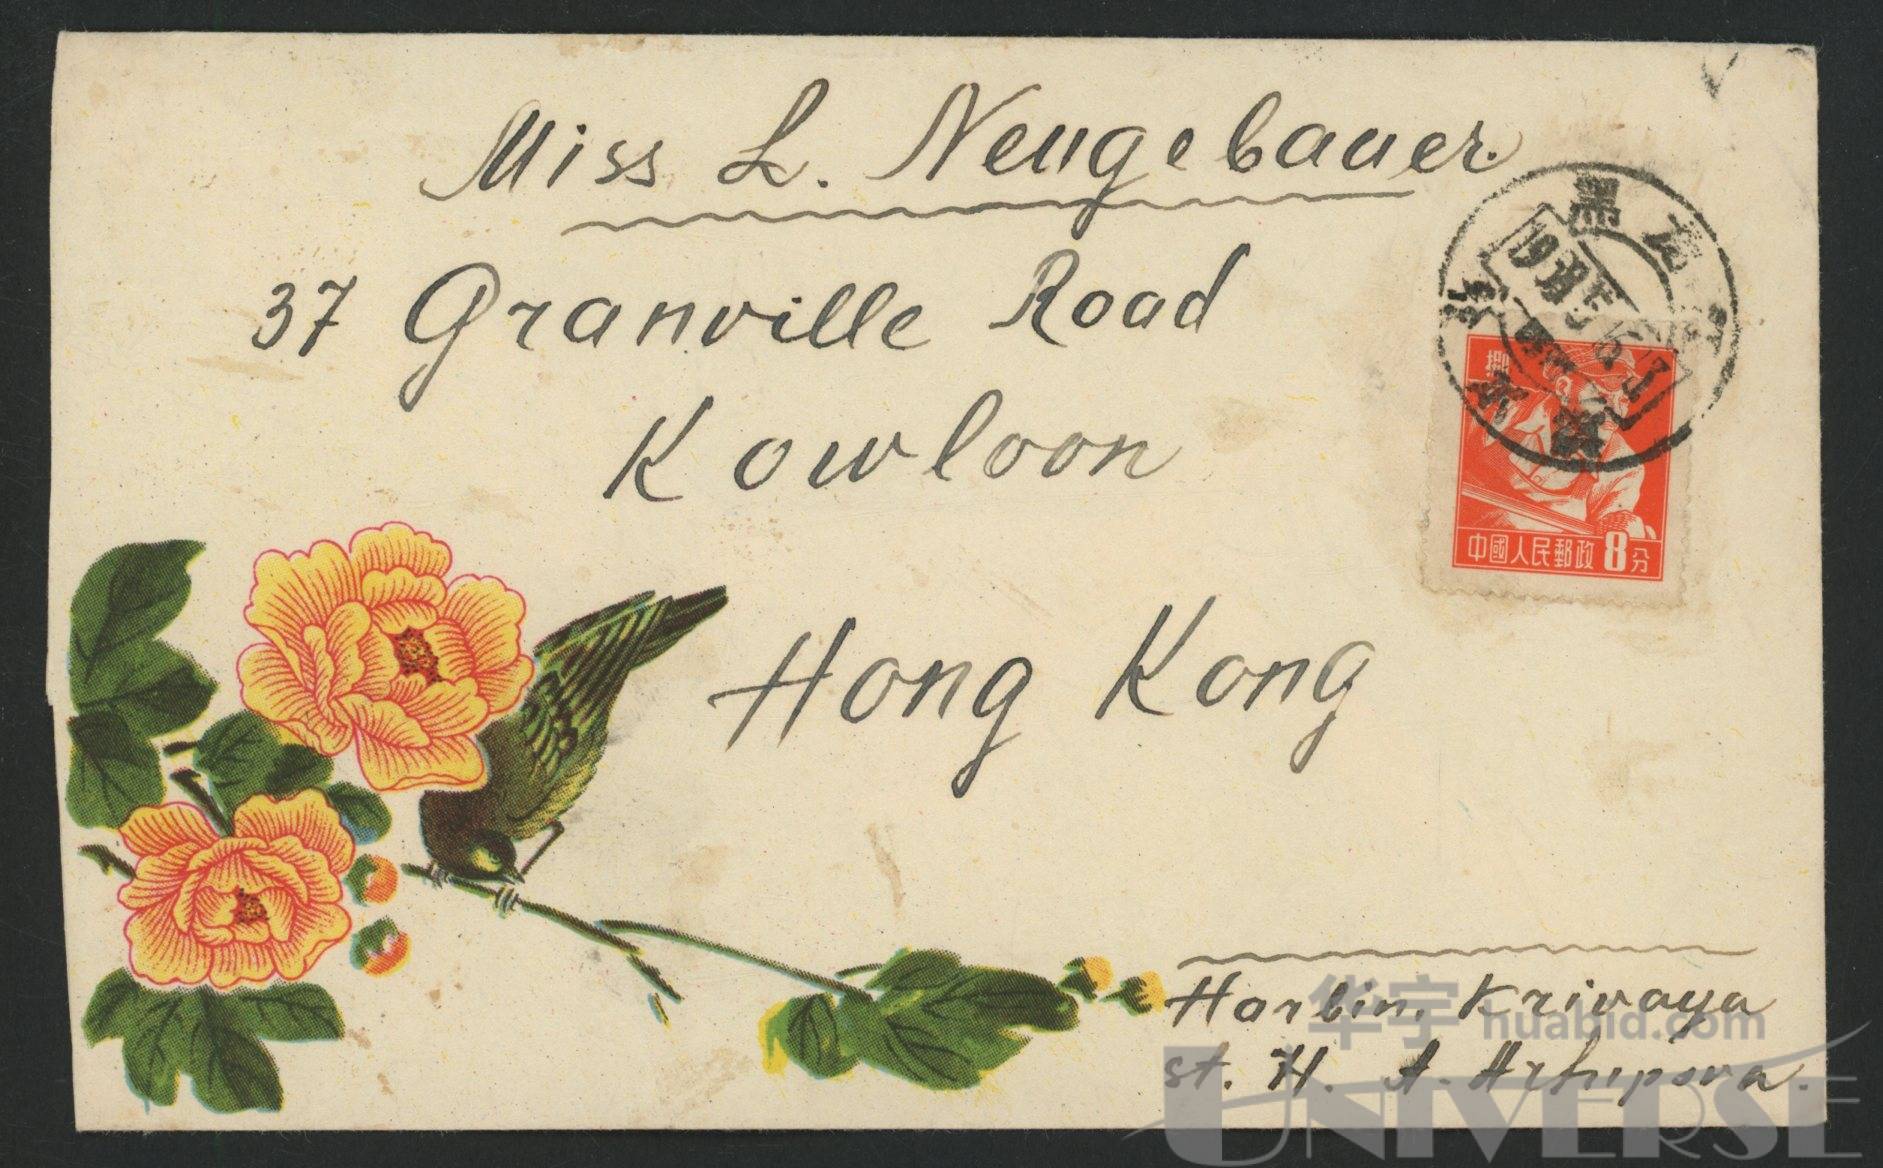 Miss L. Neugebauer.
37 Granville Road
Kowloon
Hong Kong
黑龙江
中國人民郵政 8分
Harbin, Krivaya
st. H. A. Arhipova.
华宇 huabid.com
UNIVERSE